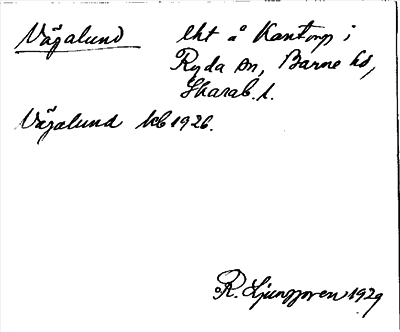 Vägalund lht å Kantorp i
Ryda sn, Barne hd,
Skarab. l.
Vägalund kb 1926.
R. Ljunggren 1929